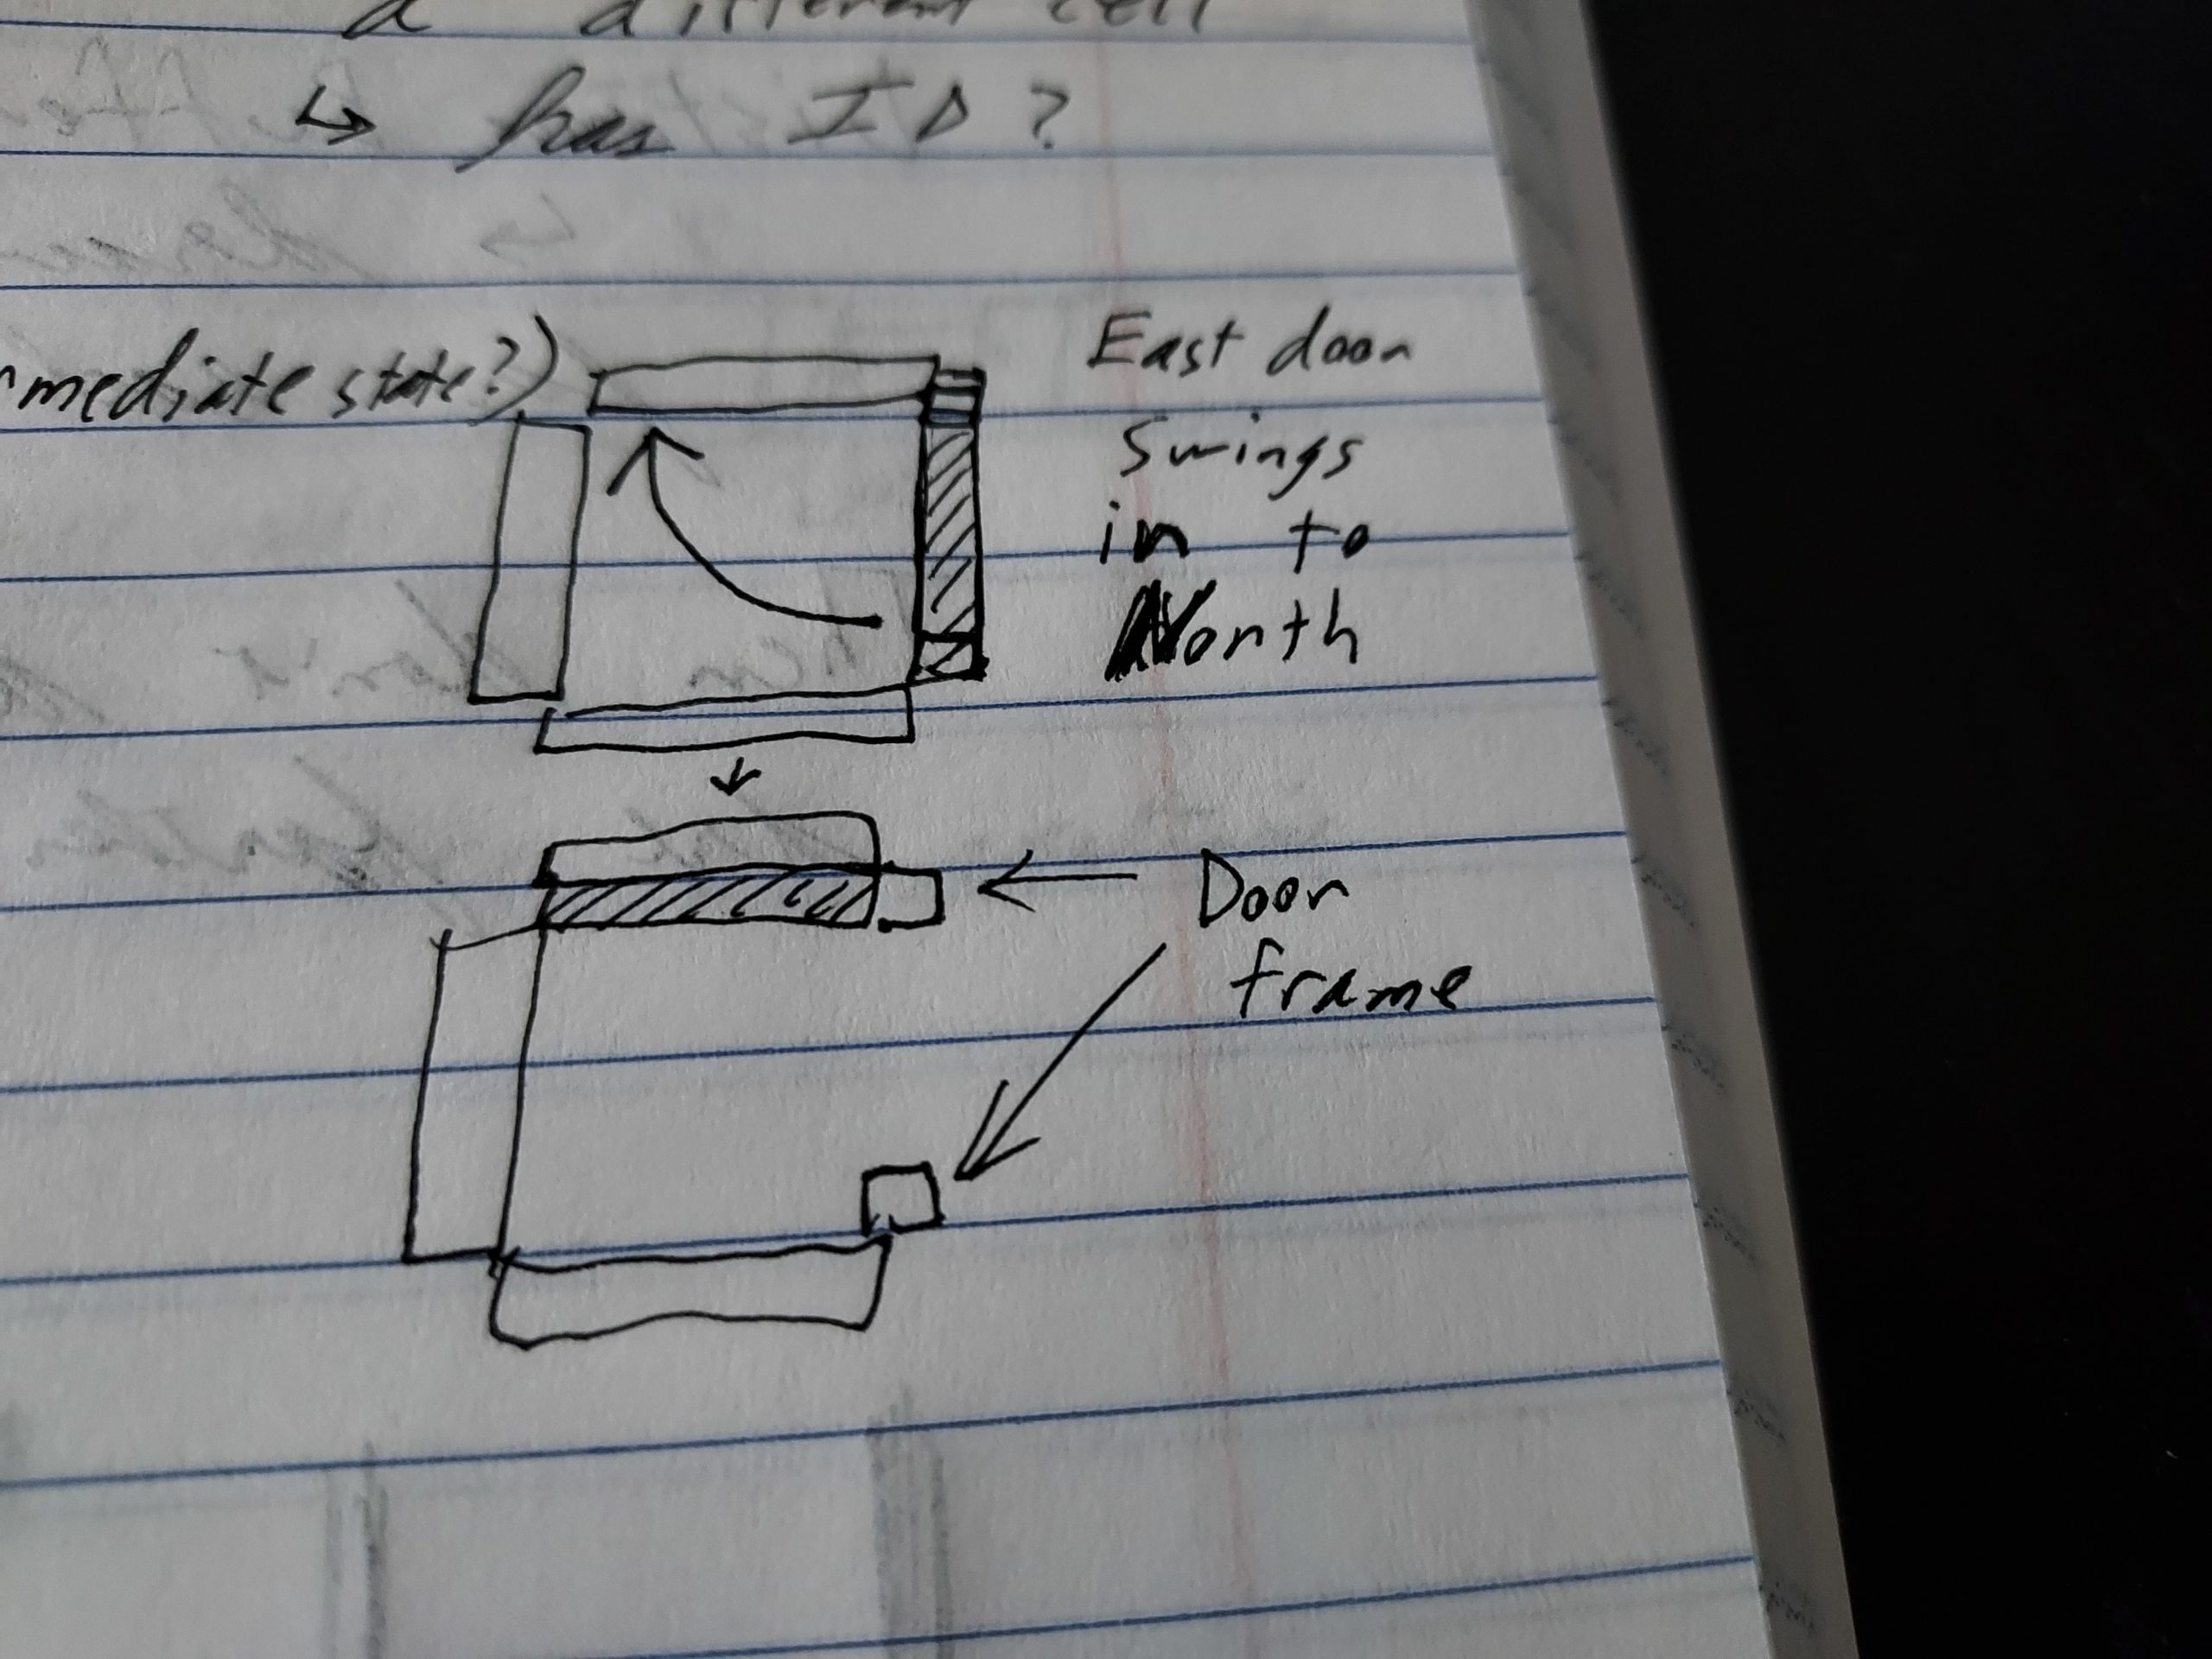 a different cell
↳ has ID?
mediate state?)
East door
Swings
in to
North
Door
frame